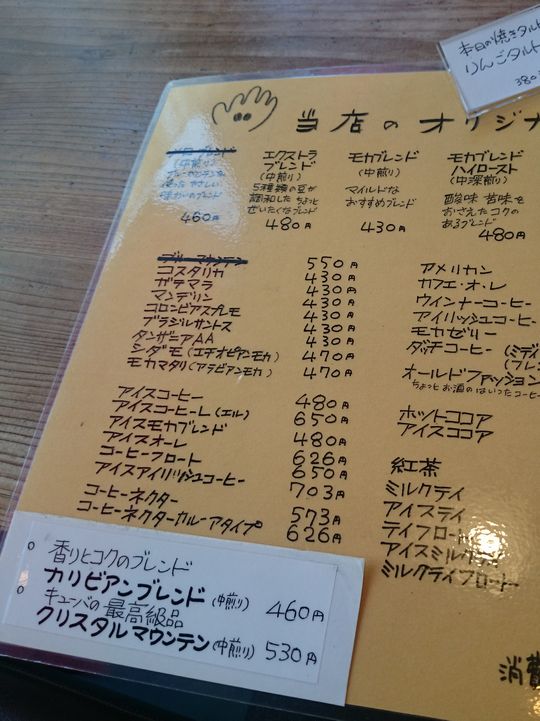 本日の焼きタルト
りんごタルト
380
当店のオリジナ
(中煎り)
460円
エクストラ
ブレンド
(中煎り)
5種類の豆が
調和したちょっと
ぜいたくなブレンド
480円
モカブレンド
(中煎り)
マイルドな
おすすめブレンド
430円
モカブレンド
ハイロースト
(中深煎り)
酸味 苦味を
おさえたコクの
あるブレンド
480円
ブルーマウンテン 550円
コスタリカ 430円
ガテマラ 430円
マンデリン 430円
コロンビアスプレモ 430円
ブラジルサントス 430円
タンザニアAA 430円
シダモ(エチオピアンモカ) 470円
モカマタリ(アラビアンモカ) 470円
アイスコーヒー 480円
アイスコーヒーL(エル) 650円
アイスモカブレンド 480円
アイスオーレ
コーヒーフロート 626円
650円
アイスアイリッシュコーヒー 703円
コーヒーネクター 573円
コーヒーネクターカルーアタイプ 626円
アメリカン
カフェ・オ・レ
ウインナーコーヒー
アイリッシュコーヒー
モカゼリー
ダッチコーヒー (ミディ
(フレン
オールドファッション
ちょっとお酒のはいったコーヒー
ホットココア
アイスココア
紅茶
ミルクティ
アイスティ
ティフロー
アイスミルクティ
ミルクティフロート
消費
香りとコクのブレンド
カリビアンブレンド(中煎り) 460円
キューバの最高級品
クリスタルマウンテン(中煎り) 530円